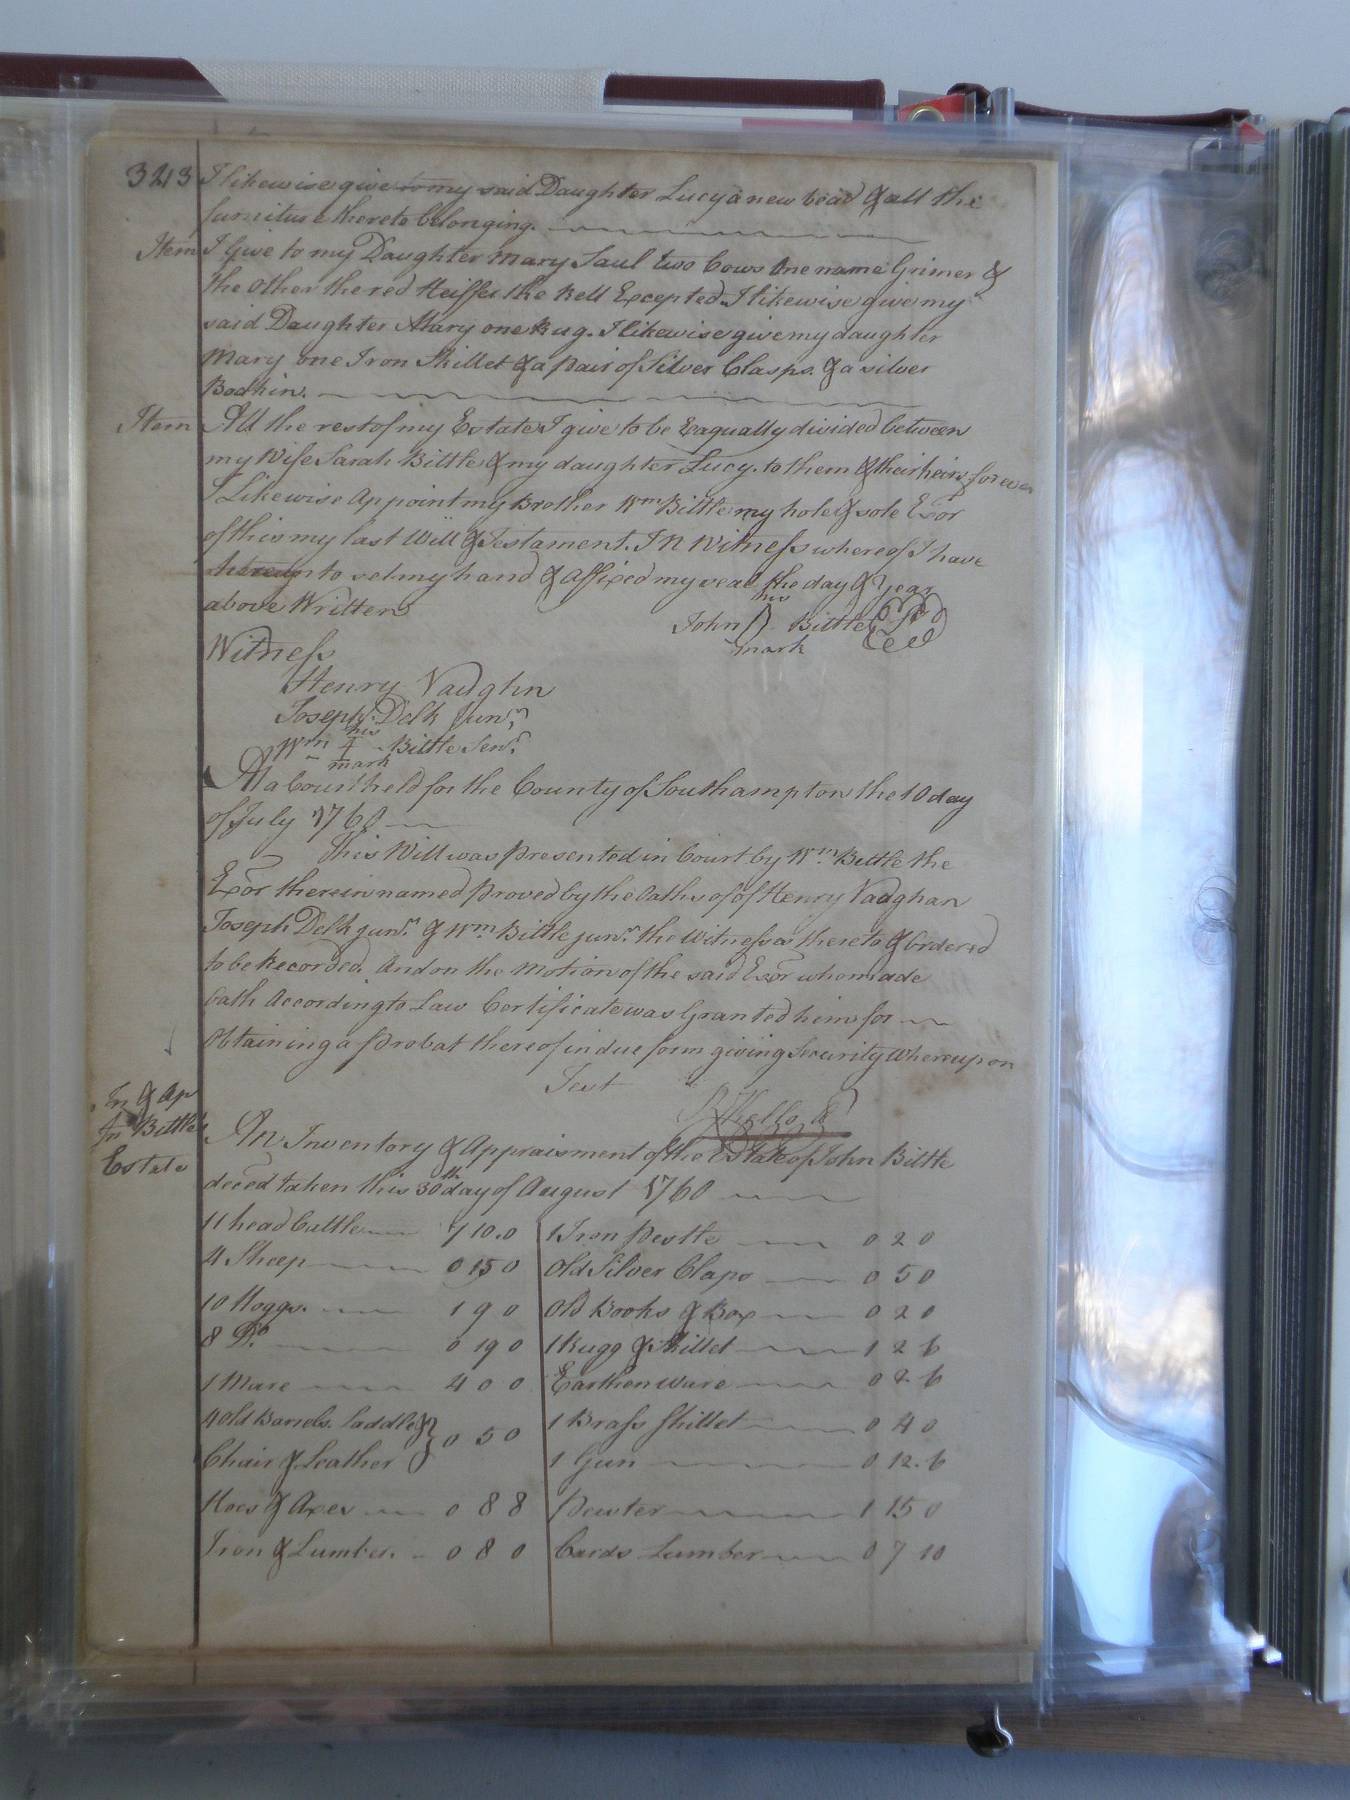 343 I likewise give to my said Daughter Lucy a new bead & all the
furniture thereto belonging.
Item I Give to my Daughter Mary Saul two Cows One name Grimer &
the other the red Heiffer the Bell Excepted I likewise give my
said Daughter Mary one Rug. I likewise give my daughter
Mary one Iron Skillet & a pair of Silver Clasps. & a silver
Bodkin.
Item All the rest of my Estate I give to be Eaqually divided between
my Wife Sarah Bittle & my daughter Lucy. to them & their heirs forever
I Likewise Appoint my Brother Wm Bittle my hole & sole Exor
of this my last Will & Testament. In Witness whereof I have
hereunto set my hand & Affixed my seal the day & year
above Written
his
John Bittle
mark
Witness
Henry Vaughn
Joseph Delk Junr
his
Wm Bittle Senr
mark
At a Court held for the County of Southampton the 10 day
of July 1760
This Will was presented in Court by Wm Bittle the
Exor therein named proved by the Oaths of of Henry Vaughan
Joseph Delk junr & Wm Bittle junr the Witnesses thereto & Ordered
to be Recorded. And on the Motion of the said Exor who made
Oath According to Law Certificate was Granted him for
Obtaining a Probat thereof in due form giving Security Whereupon
Test
In & Ap
Jn Bittle
Estate
An Inventory & Appraisment of the Estate of John Bittle
deced taken this 30th day of August 1760
11 head Cattle 7 10.0
4 Sheep 0 15 0
10 Hoggs. 1 9 0
8 Do. 0 19 0
1 Mare 4 0 0
4 old Barrels. Saddle &
Chair & Leather 0 5 0
Hoes & Axes 0 8 8
Iron & Lumber. 0 8 0
1 Iron Pestle 0 2 0
Old Silver Clasps 0 5 0
Old Books & Box 0 2 0
1 Rugg & Skillet 1 2 6
Earthen ware 0 2. 6
1 Brass Skillet 0 4 0
1 Gun 0 12. 6
Pewter 1 15 0
Cards Lumber 0 7 10